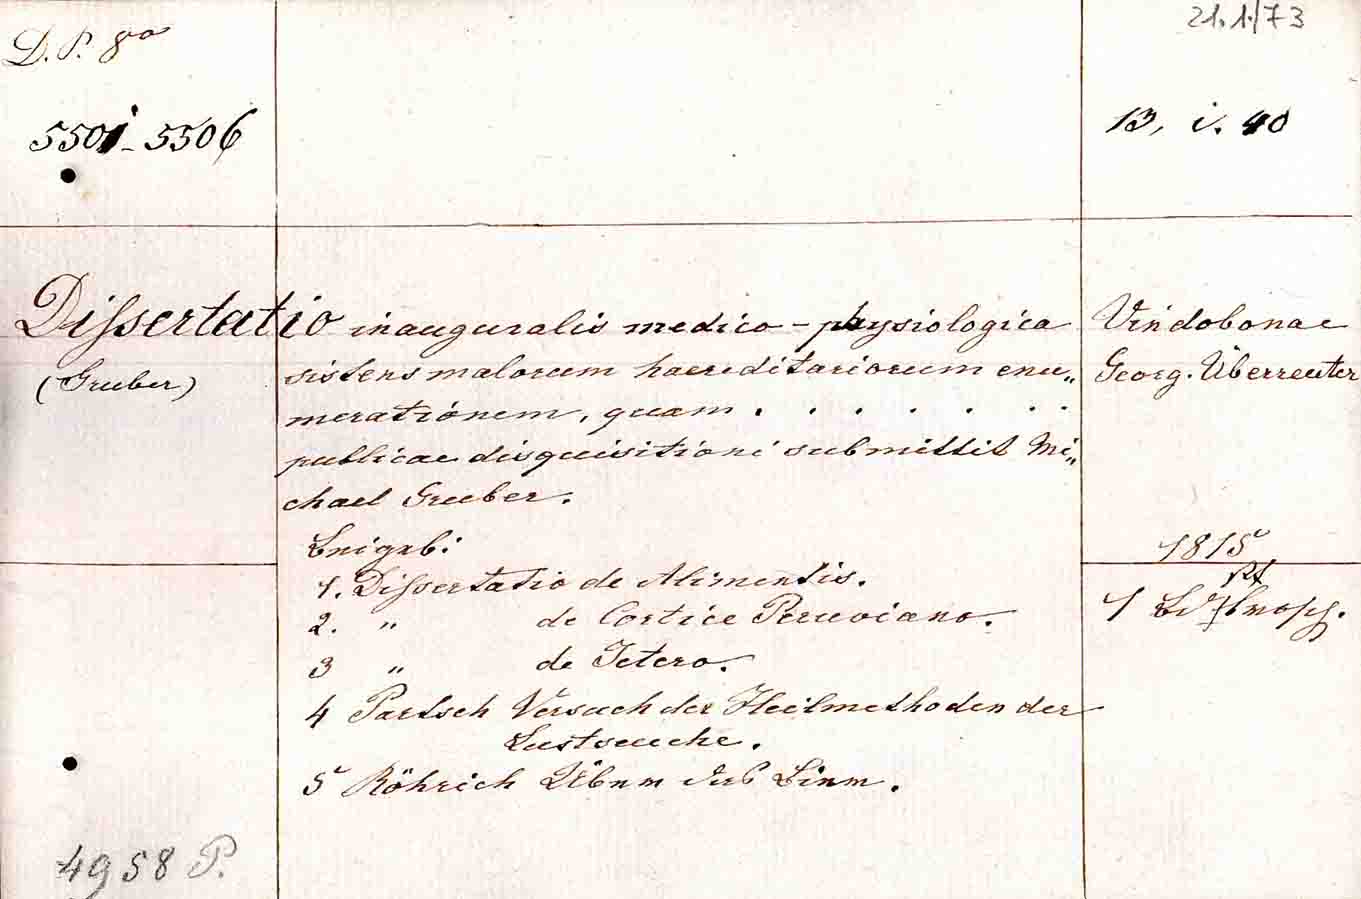 D. P. 8o
21.1./73
5501-5506
13. i. 40
Dissertatio inauguralis medico-physiologica
(Gruber)
sistens malorum haereditariorum enu„
merationem, quam . . . . . . .
publicae disquisitioni submittit Mi„
chael Gruber.
Vindobonae
Georg. Überreuter
1815
Beigeb:
1. Dissertatio de Alimentis.
2. „ de Cortice Peruviano.
3 „ de Ictero.
4 Partsch Versuch der Heilmethoden der
Lustseuche.
5 Röhrich Über das Bier.
1
4958 P.